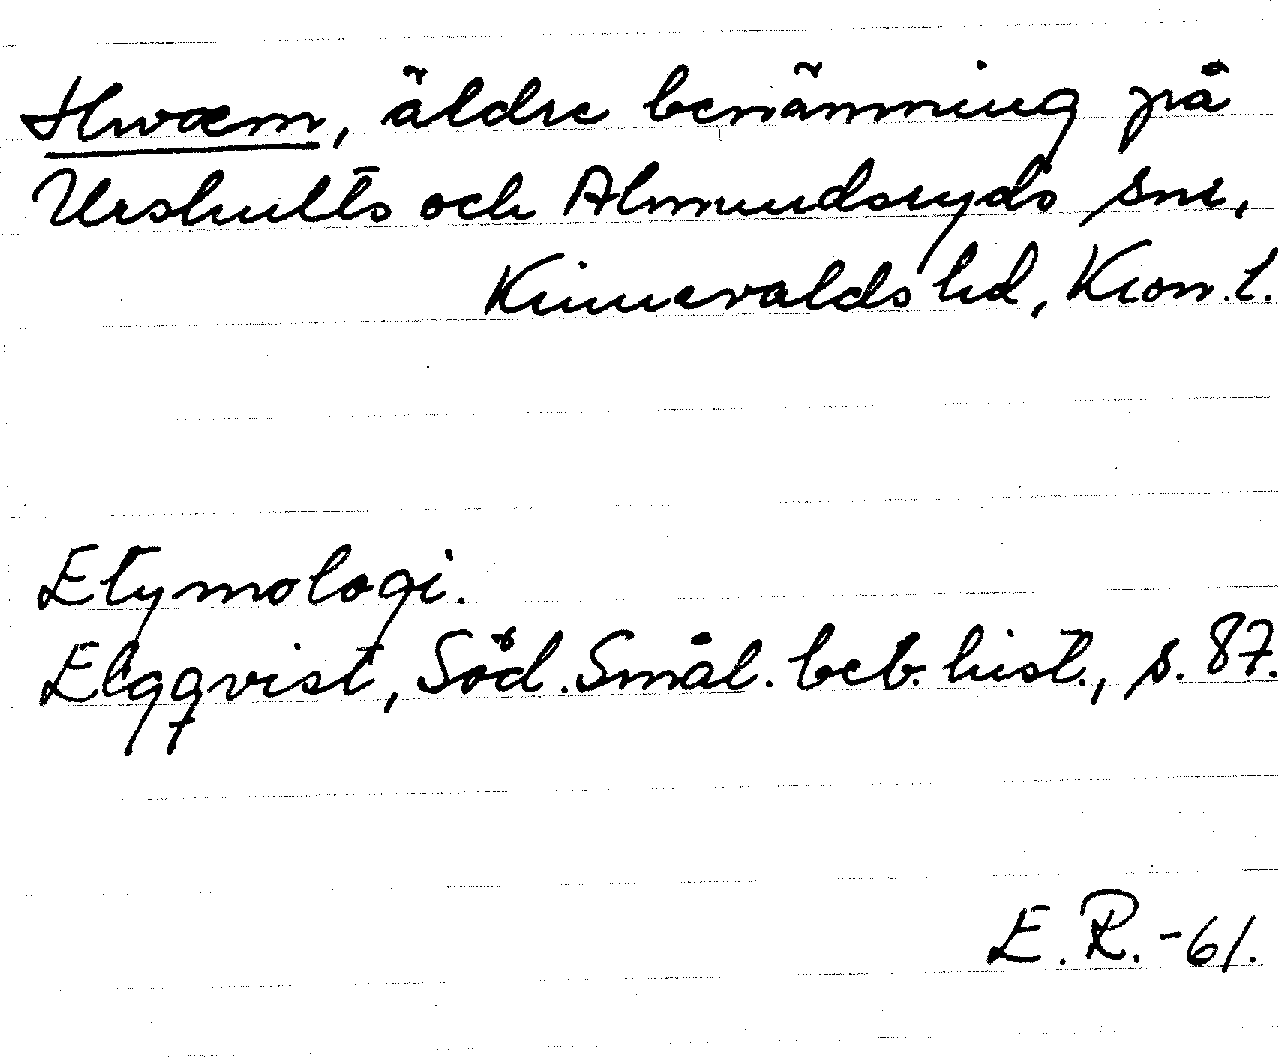 Hwæm, äldre benämning på
Urshults och Almundsryds snr,
Kinnevalds hd, Kron. l.
Etymologi.
Elgqvist, Söd. Smål. beb. hist., s. 87.
E. R. -61.